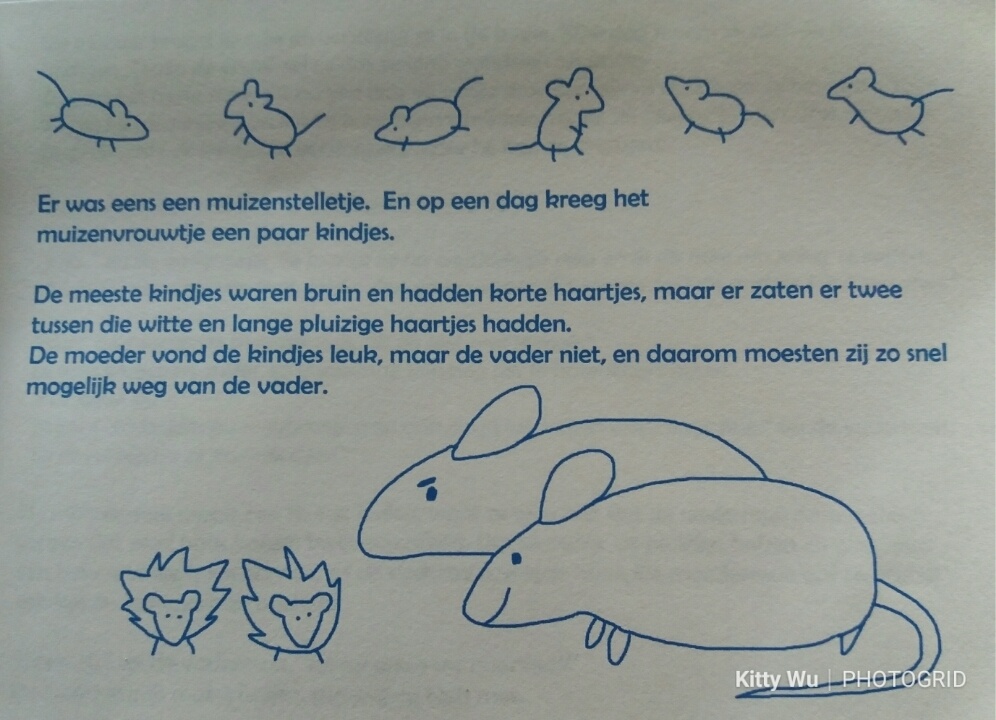 Er was eens een muizenstelletje. En op een dag kreeg het
muizenvrouwtje een paar kindjes.
De meeste kindjes waren bruin en hadden korte haartjes, maar er zaten er twee
tussen die witte en lange pluizige haartjes hadden.
De moeder vond de kindjes leuk, maar de vader niet, en daarom moesten zij zo snel
mogelijk weg van de vader.
Kitty Wu | PHOTOGRID